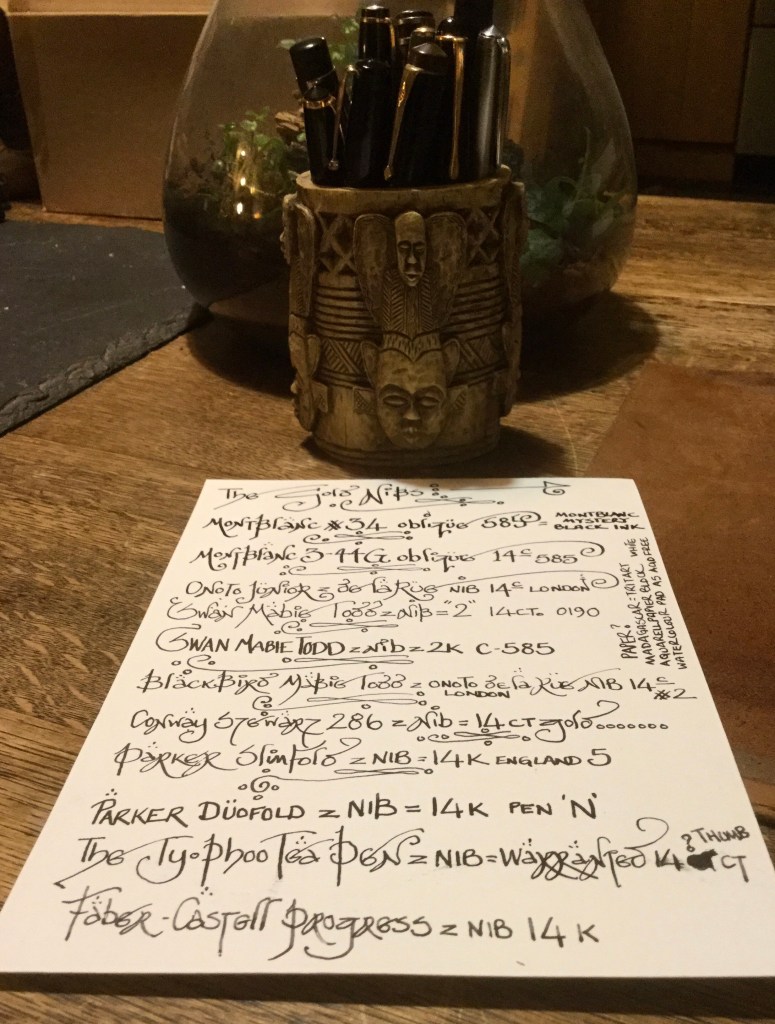 The Gold Nibs
MontBlanc #34 oblique 585 = MONTBLANC MYSTERY BLACK INK
MontBlanc 3-44 G. oblique 14c 585
Onoto Junior z de la Rue NIB 14c LONDON
Swan Mabie Todd z Nib = "2" 14 CT. 0190
SWAN MABIE TODD z Nib z 2K C-585
BlackBird Mabie Todd z ONOTO de la Rue NIB 14c #2
LONDON
Conway Stewart 286 z Nib = 14 CT z gold.......
Parker Slimfold z NIB = 14K ENGLAND 5
PARKER DÜOFOLD z NIB = 14K PEN 'N'
The Ty.Phoo Tea Pen z NIB = Warranted 14 CT
? THUMB
Faber-Castell Progress z NIB 14 K
PAPER?
MADAGASLAR = TRITART WHITE
AQUARELLPAPIER BLOCK
WATERCOLOUR PAD A5 ACID FREE